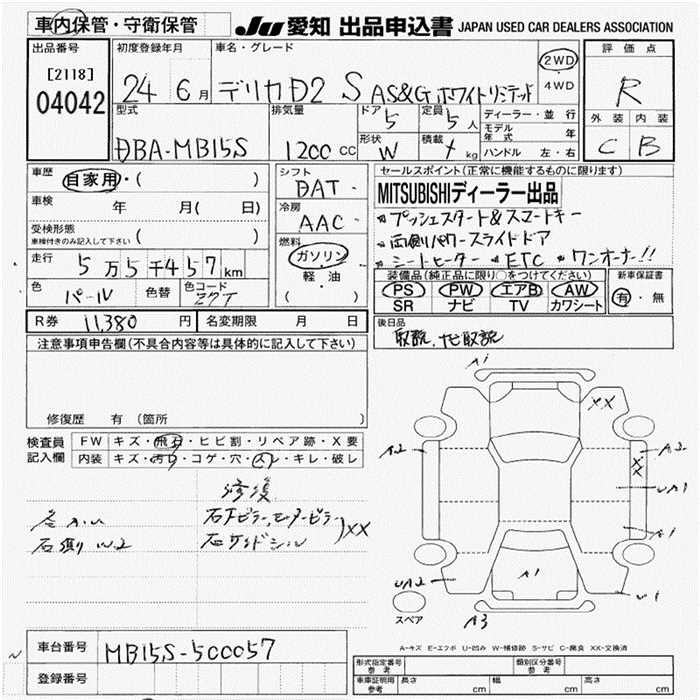 車内保管・守衛保管
JU 愛知 出品申込書 JAPAN USED CAR DEALERS ASSOCIATION
出品番号
[2118]
04042
初度登録年月
24 6月
車名・グレード
デリカD2 S AS&G ホワイトリミテッド
2WD
4WD
評価点
R
外装 内装
C B
型式
DBA-MB15S
排気量
1200 cc
ドア
5
定員
5人
形状
W
積載
kg
ディーラー・並行
モデル年式 年
ハンドル 左・右
車歴
自家用・( )
車検 年 月( 日)
受検形態
車検付きのみ記入して下さい ( )
走行
5万5千457km
色
パール
色替
色コード
Z7T
シフト
DAT
冷房
AAC
燃料
ガソリン
軽・油
( )
セールスポイント(正常に機能するものに限ります)
MITSUBISHIディーラー出品
プッシュスタート&スマートキー
両側パワースライドドア
シートヒーター ETC ワンオーナー!!
装備品(純正品に限り○をつけてください)
PS PW エアB AW
SR ナビ TV カワシート
新車保証書
有・無
R券 11,380円
名変期限 月 日
後日品
取説、ナビ取説
注意事項申告欄(不具合内容等は具体的に記入して下さい)
修復歴 有 (箇所 )
検査員記入欄
FW キズ・飛石・ヒビ割・リペア跡・X要
内装 キズ・汚れ・コゲ・穴・凹レ・キレ・破レ
修復
右側 W2
XX
A1
XX
A2
A2
XX
UA1
A1
A1
UA2
U1
A3
スペア
A-キズ E-エクボ U-凹み W-補修跡 S-サビ C-腐食 XX-交換済
車台番号
MB15S-500057
登録番号
形式指定番号
参考
類別区分番号
参考
車庫証明用
参考
長さ cm
幅 cm
高さ cm